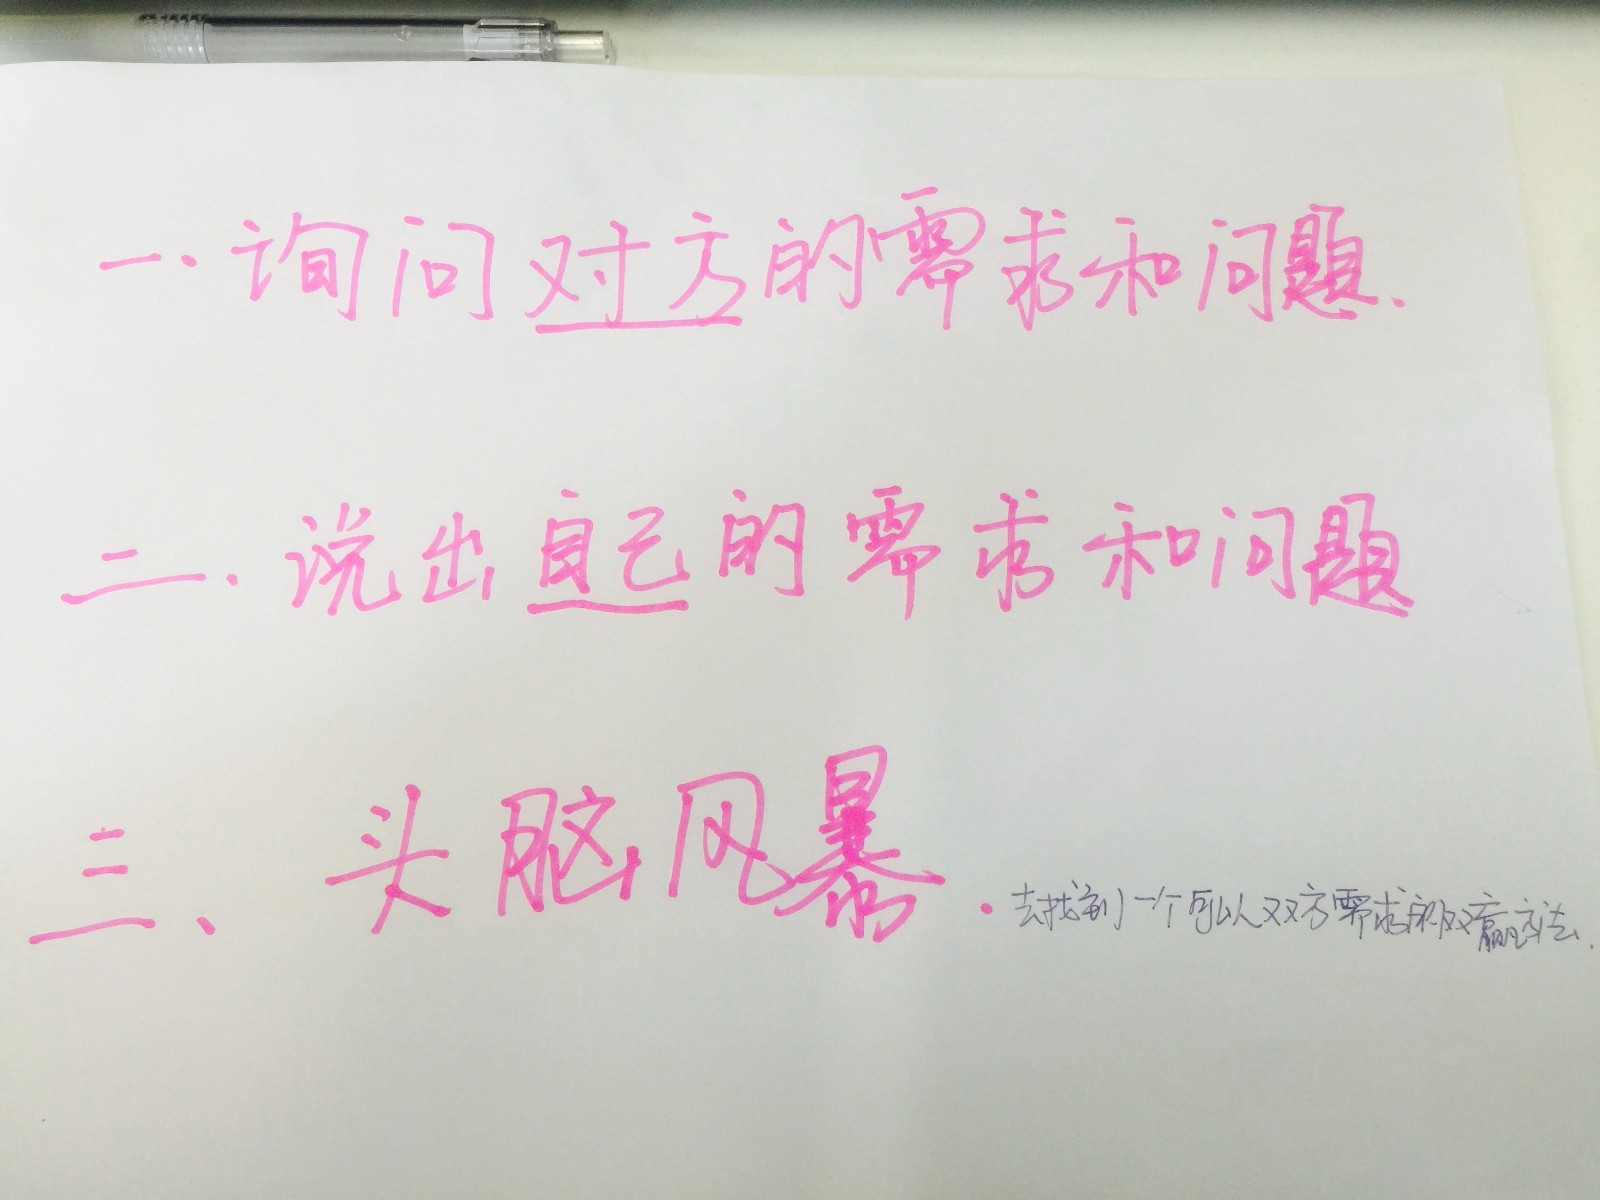 一.询问对方的需求和问题.
二.说出自己的需求和问题
三、头脑风暴.去找到一个可以双方需求的双赢方法.